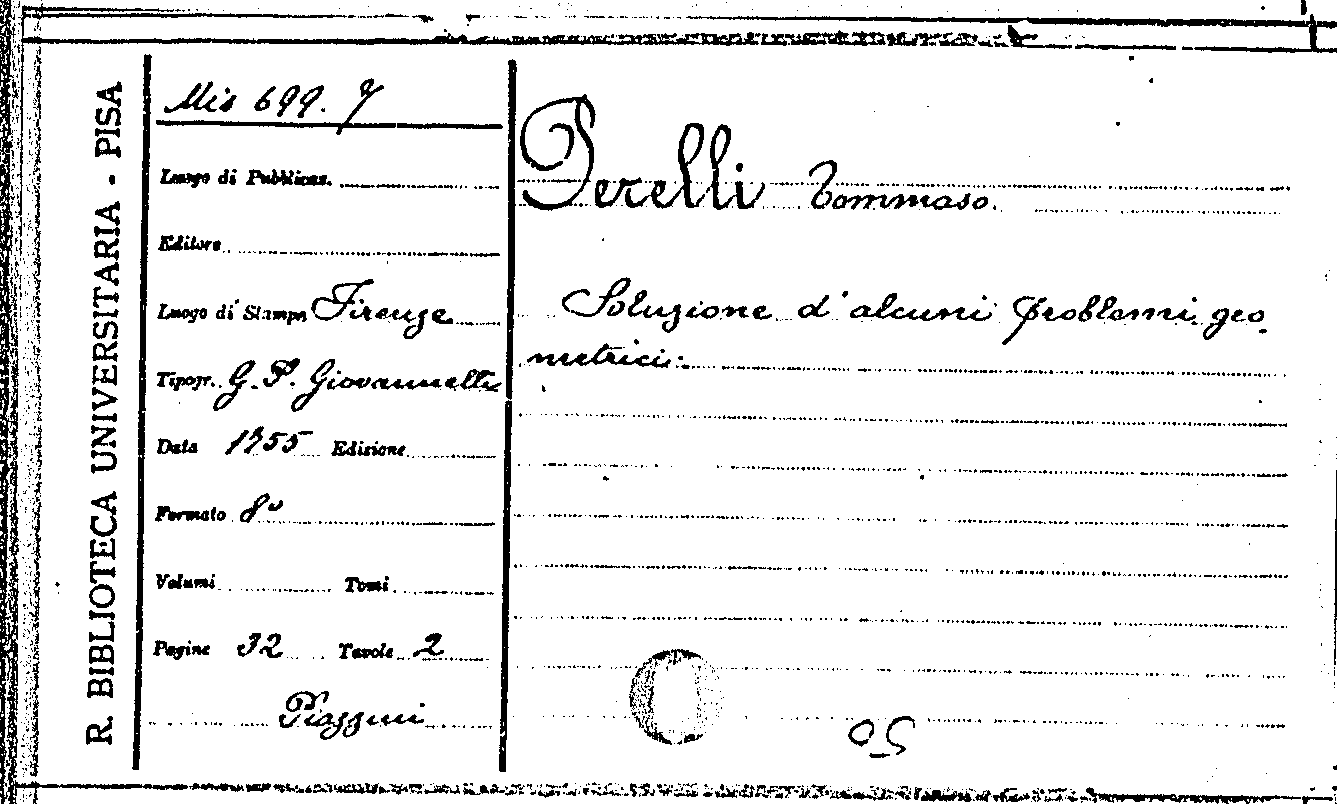 R. BIBLIOTECA UNIVERSITARIA - PISA
Mis 699. 7
Luogo di Pubblicaz.
Editore
Luogo di Stampa Firenze
Tipogr. G. P. Giovannelli
Data 1755 Edizione
Formato 8º
Volumi Tomi
Pagine 32 Tavole 2
Piazzini
Perelli Tommaso.
Soluzione d'alcuni problemi geo-
metrici.